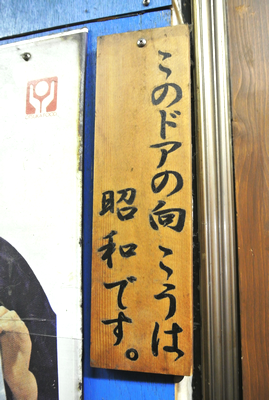 このドアの向こうは
昭和です。